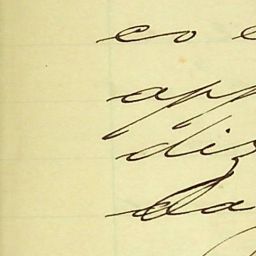 co e
app
diz
da